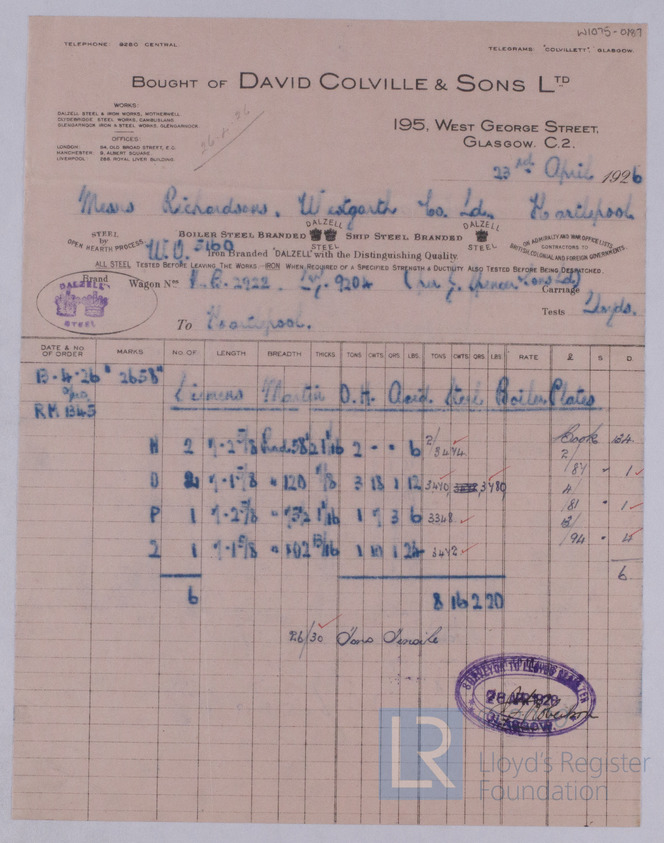 W1075-0187
TELEPHONE: 3280 CENTRAL.
TELEGRAMS: "COLVILLETT", GLASGOW.
BOUGHT OF DAVID COLVILLE & SONS LTD
WORKS:
DALZELL STEEL & IRON WORKS, MOTHERWELL
CLYDEBRIDGE STEEL WORKS, CAMBUSLANG
GLENGARNOCK IRON & STEEL WORKS, GLENGARNOCK
OFFICES:
LONDON: 34, OLD BROAD STREET, E.C.
MANCHESTER: 9, ALBERT SQUARE.
LIVERPOOL: 256, ROYAL LIVER BUILDING.
195, WEST GEORGE STREET,
GLASGOW. C.2.
23rd April 1926
Messrs Richardsons, Westgarth & Co. Ld. Hartlepool
STEEL by OPEN HEARTH PROCESS
BOILER STEEL BRANDED DALZELL STEEL SHIP STEEL BRANDED DALZELL STEEL
ON ADMIRALTY AND WAR OFFICE LISTS
CONTRACTORS TO
BRITISH, COLONIAL AND FOREIGN GOVERNMENTS.
W.O. 5160
Iron Branded "DALZELL" with the Distinguishing Quality
ALL STEEL TESTED BEFORE LEAVING THE WORKS - IRON WHEN REQUIRED OF A SPECIFIED STRENGTH & DUCTILITY ALSO TESTED BEFORE BEING DESPATCHED.
Brand
DALZELL STEEL
Wagon Nos 2922 9204 (per J. Spencer & Sons Ld)
Carriage
Tests Lloyds.
To Hartlepool.
DATE & NO. OF ORDER MARKS NO. OF LENGTH BREADTH THICKS TONS CWTS QRS LBS. TONS CWTS. QRS LBS RATE £ S D.
13-4-26 2658
RM 1345
Siemens Martin O.H. Acid Steel Boiler Plates
H 2 7-2 5/8 2 - - 6 2/3474 Cook 134
O 2 7-1 5/8 " 120 3 18 1 12 3470 3480 87 " 1
P 1 7-2 5/8 1 7 3 6 3348 81 " 1
2 1 7-1 5/8 1 10 1 24 3472 94 " 4
6
6 8 16 2 20
26/30 Tons Tensile
SURVEYOR TO LLOYD'S REGISTER
GLASGOW.
LR Lloyd's Register
Foundation